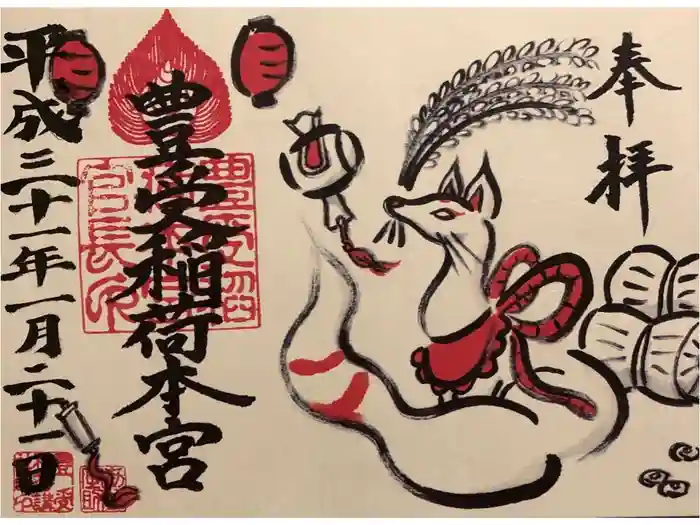 奉拝
豊受稲荷本宮
平成三十一年一月二十一日